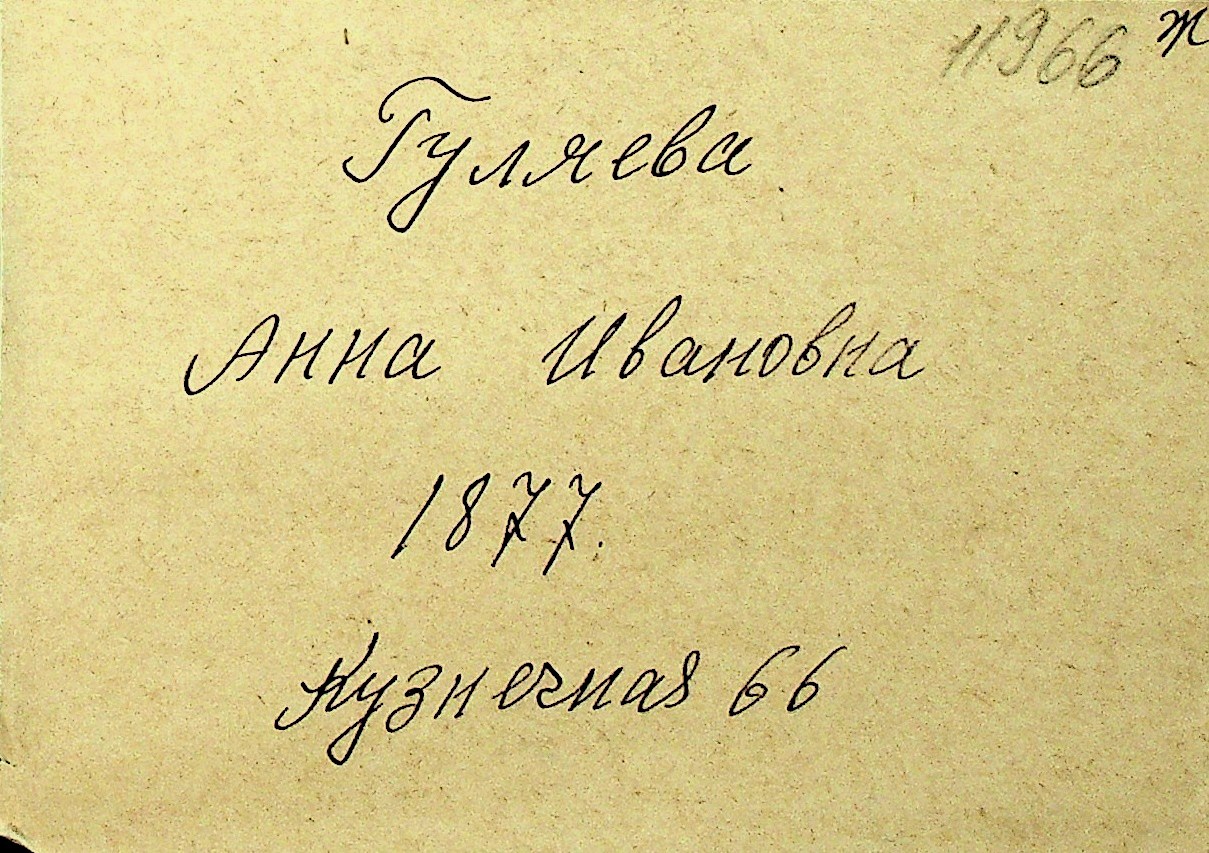 11966 ж
Гуляева
Анна Ивановна
1877.
Кузнечная 66